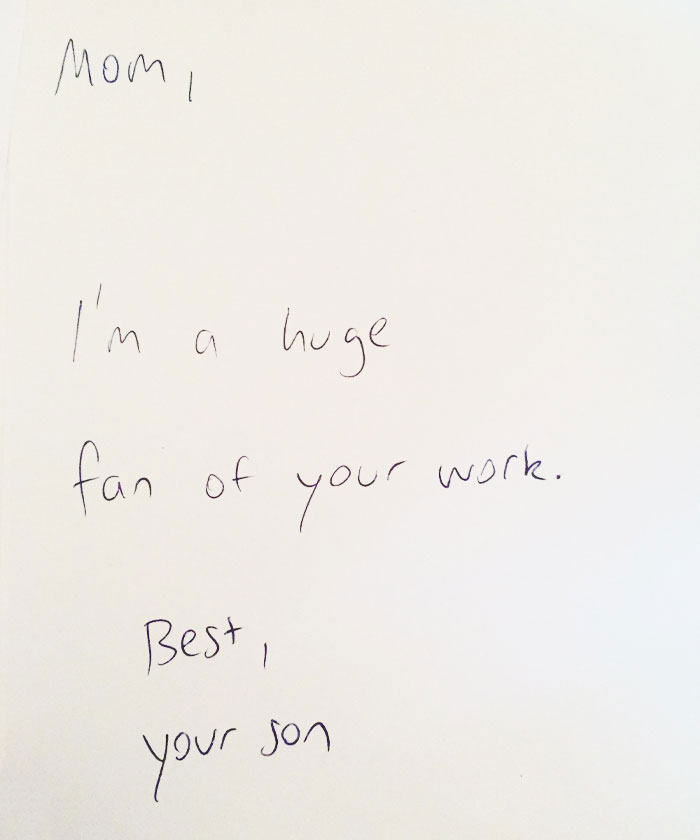 Mom,
I'm a huge
fan of your work.
Best,
your son